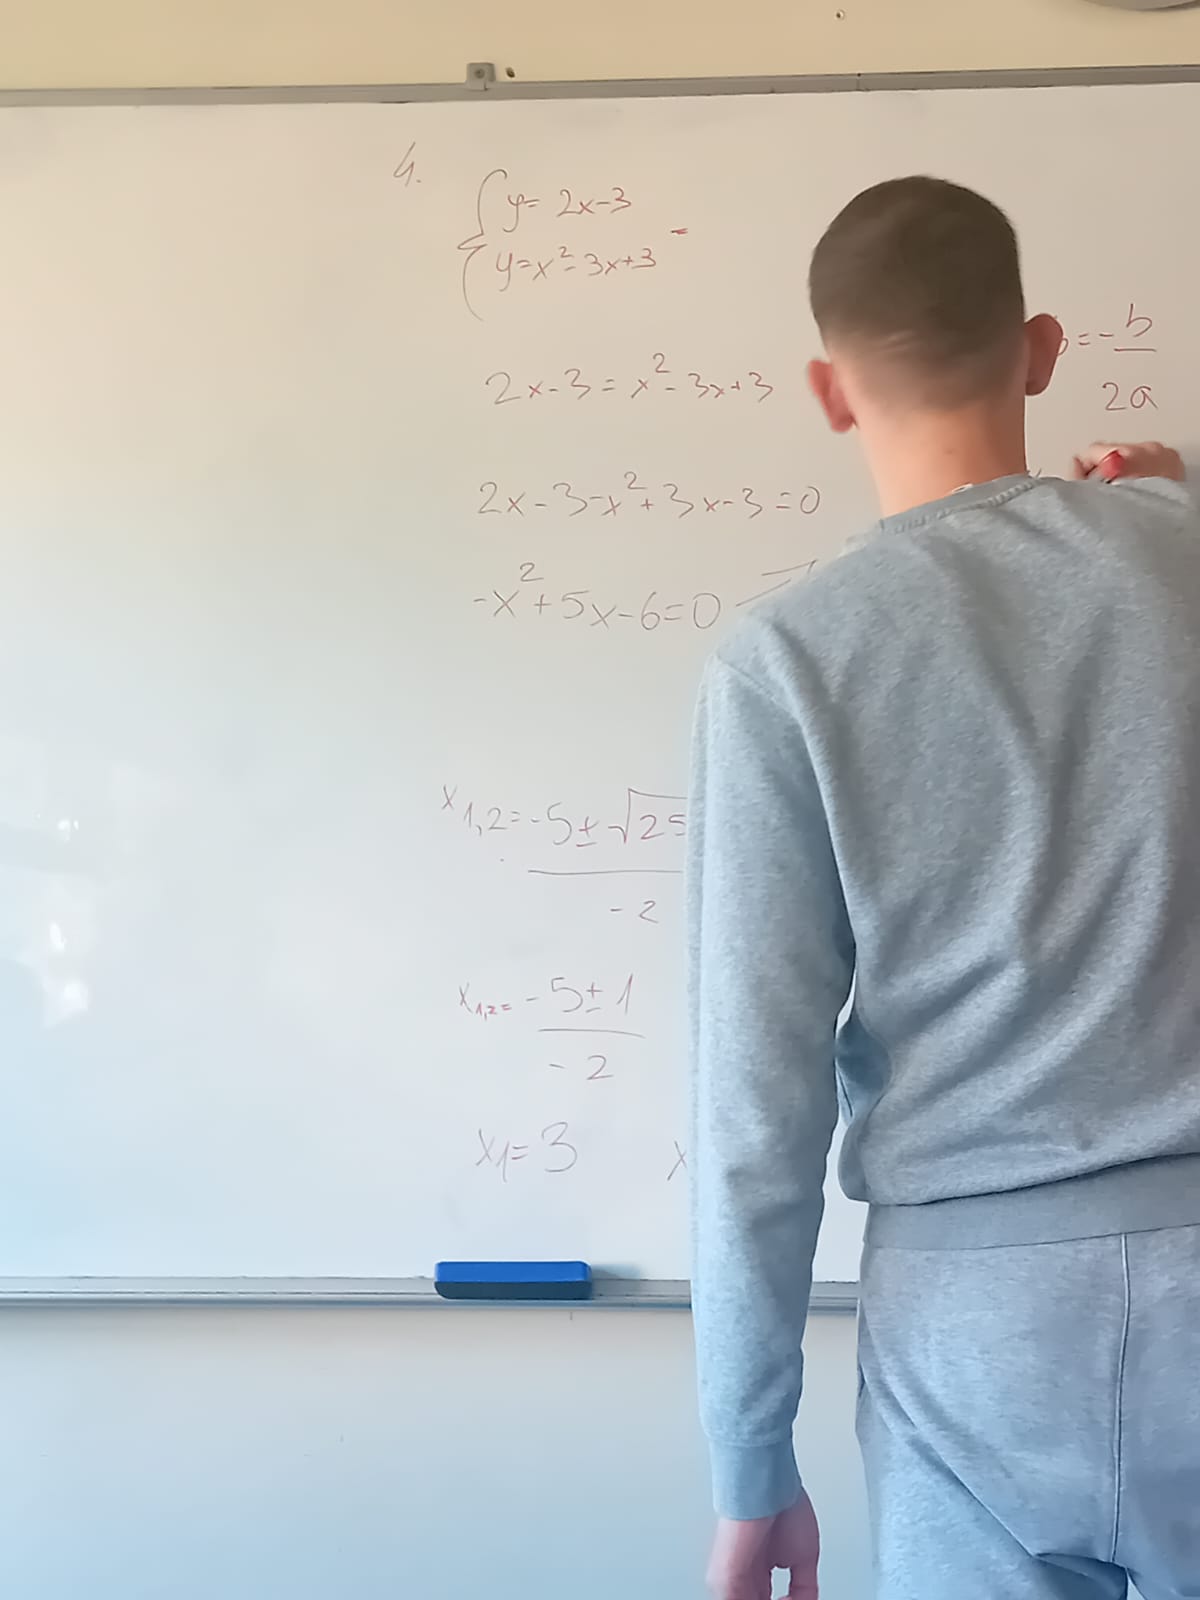 4.
y= 2x-3
y=x²-3x+3 -
2x-3=x²-3x+3
2x-3-x²+3x-3=0
-x²+5x-6=0
x1,2=-5±√25
-2
x1,2= -5±1
-2
x1=3 x
=-b
2a